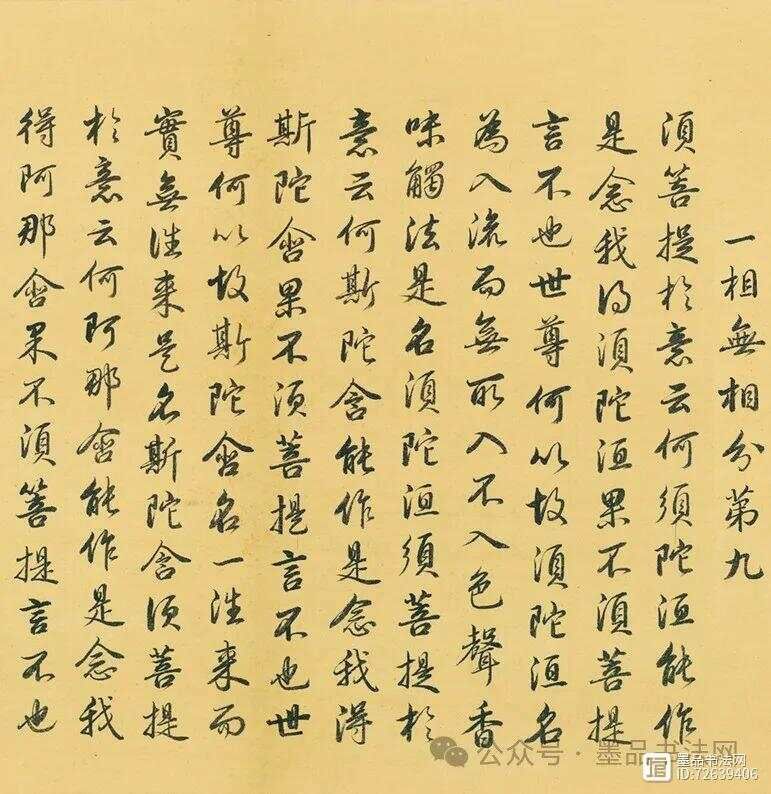 一相無相分第九
須菩提於意云何須陀洹能作
是念我得須陀洹果不須菩提
言不也世尊何以故須陀洹名
為入流而無所入不入色聲香
味觸法是名須陀洹須菩提於
意云何斯陀含能作是念我得
斯陀含果不須菩提言不也世
尊何以故斯陀含名一往來而
實無往來是名斯陀含須菩提
於意云何阿那含能作是念我
得阿那含果不須菩提言不也
公众号·墨品书法网
墨品书法网
ID:72639406